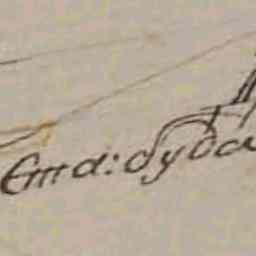 Ema: dyda